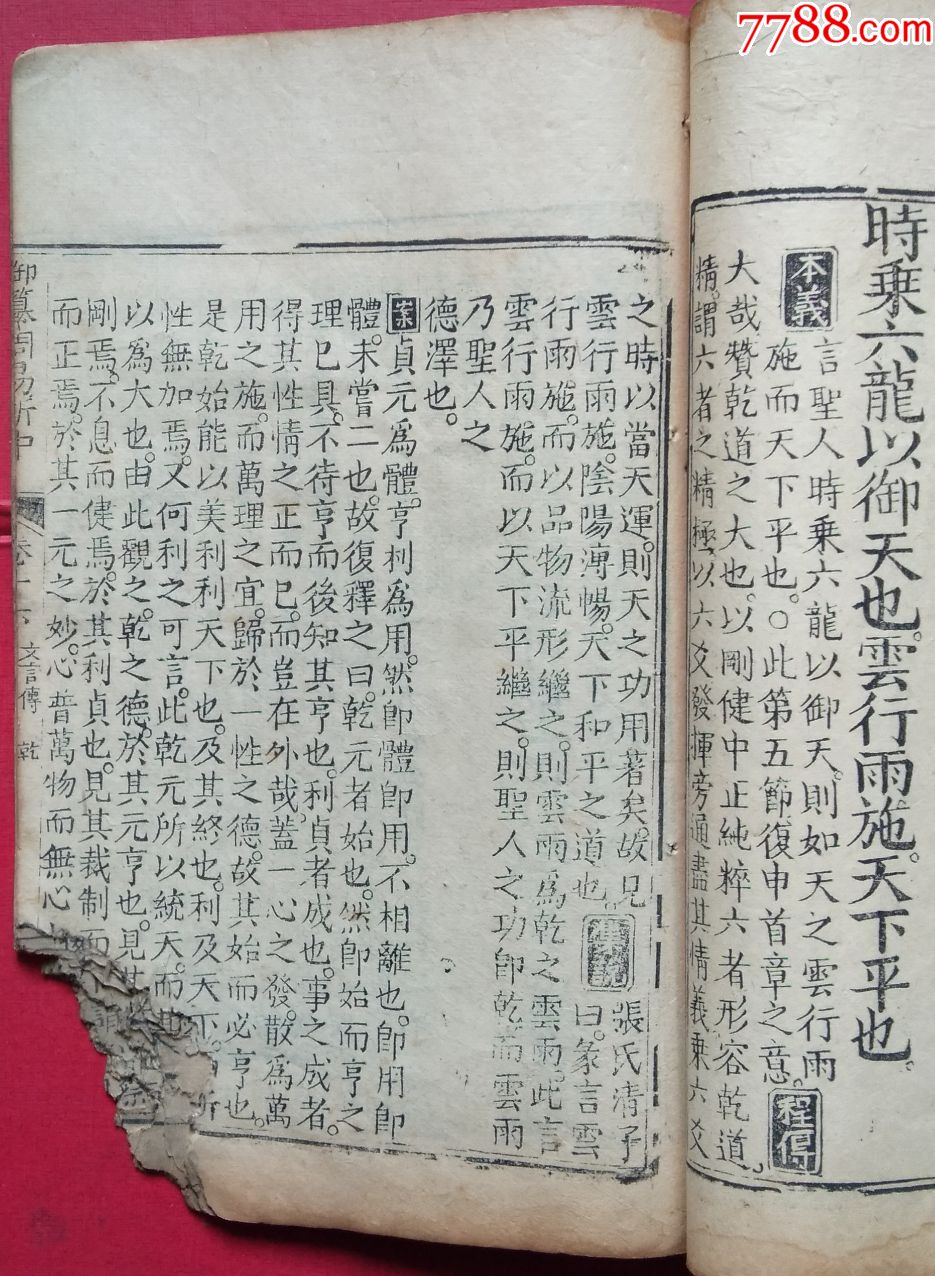 7788.com
時乗六龍以御天也。雲行雨施。天下平也。
本義
言聖人時乗六龍以御天。則如天之雲行雨
施而天下平也。○此第五節復申首章之意。
程傳
大哉贊乾道之大也。以剛健中正純粹六者形容乾道。
精謂六者之精極。以六爻發揮旁通盡其情義。乗六爻
之時以當天運。則天之功用著矣。故見
雲行雨施。陰陽溥暢。天下和平之道也。
集說
張氏清子
曰。彖言雲
行雨施。而以品物流形繼之。則雲雨爲乾之雲雨。此言
雲行雨施。而以天下平繼之。則聖人之功卽乾而雲雨
乃聖人之
德澤也。
案
貞元爲體。亨利爲用。然卽體卽用。不相離也。卽用卽
體。未嘗二也。故復釋之曰。乾元者始也。然卽始而亨之
理已具。不待亨而後知其亨也。利貞者成也。事之成者。
得其性情之正而已。而豈在外哉。蓋一心之發。散爲萬
用之施。而萬理之宜。歸於一性之德。故其始而必亨也。
是乾始能以美利利天下也。及其終也。利及天下。
性無加焉。又何利之可言。此乾元所以統天。而
以爲大也。由此觀之。乾之德。於其元亨也。見
剛焉。不息而健焉。於其利貞也。見其裁制而
而正焉。於其一元之妙。心普萬物而無心
御纂周易折中
卷十六
文言傳
乾